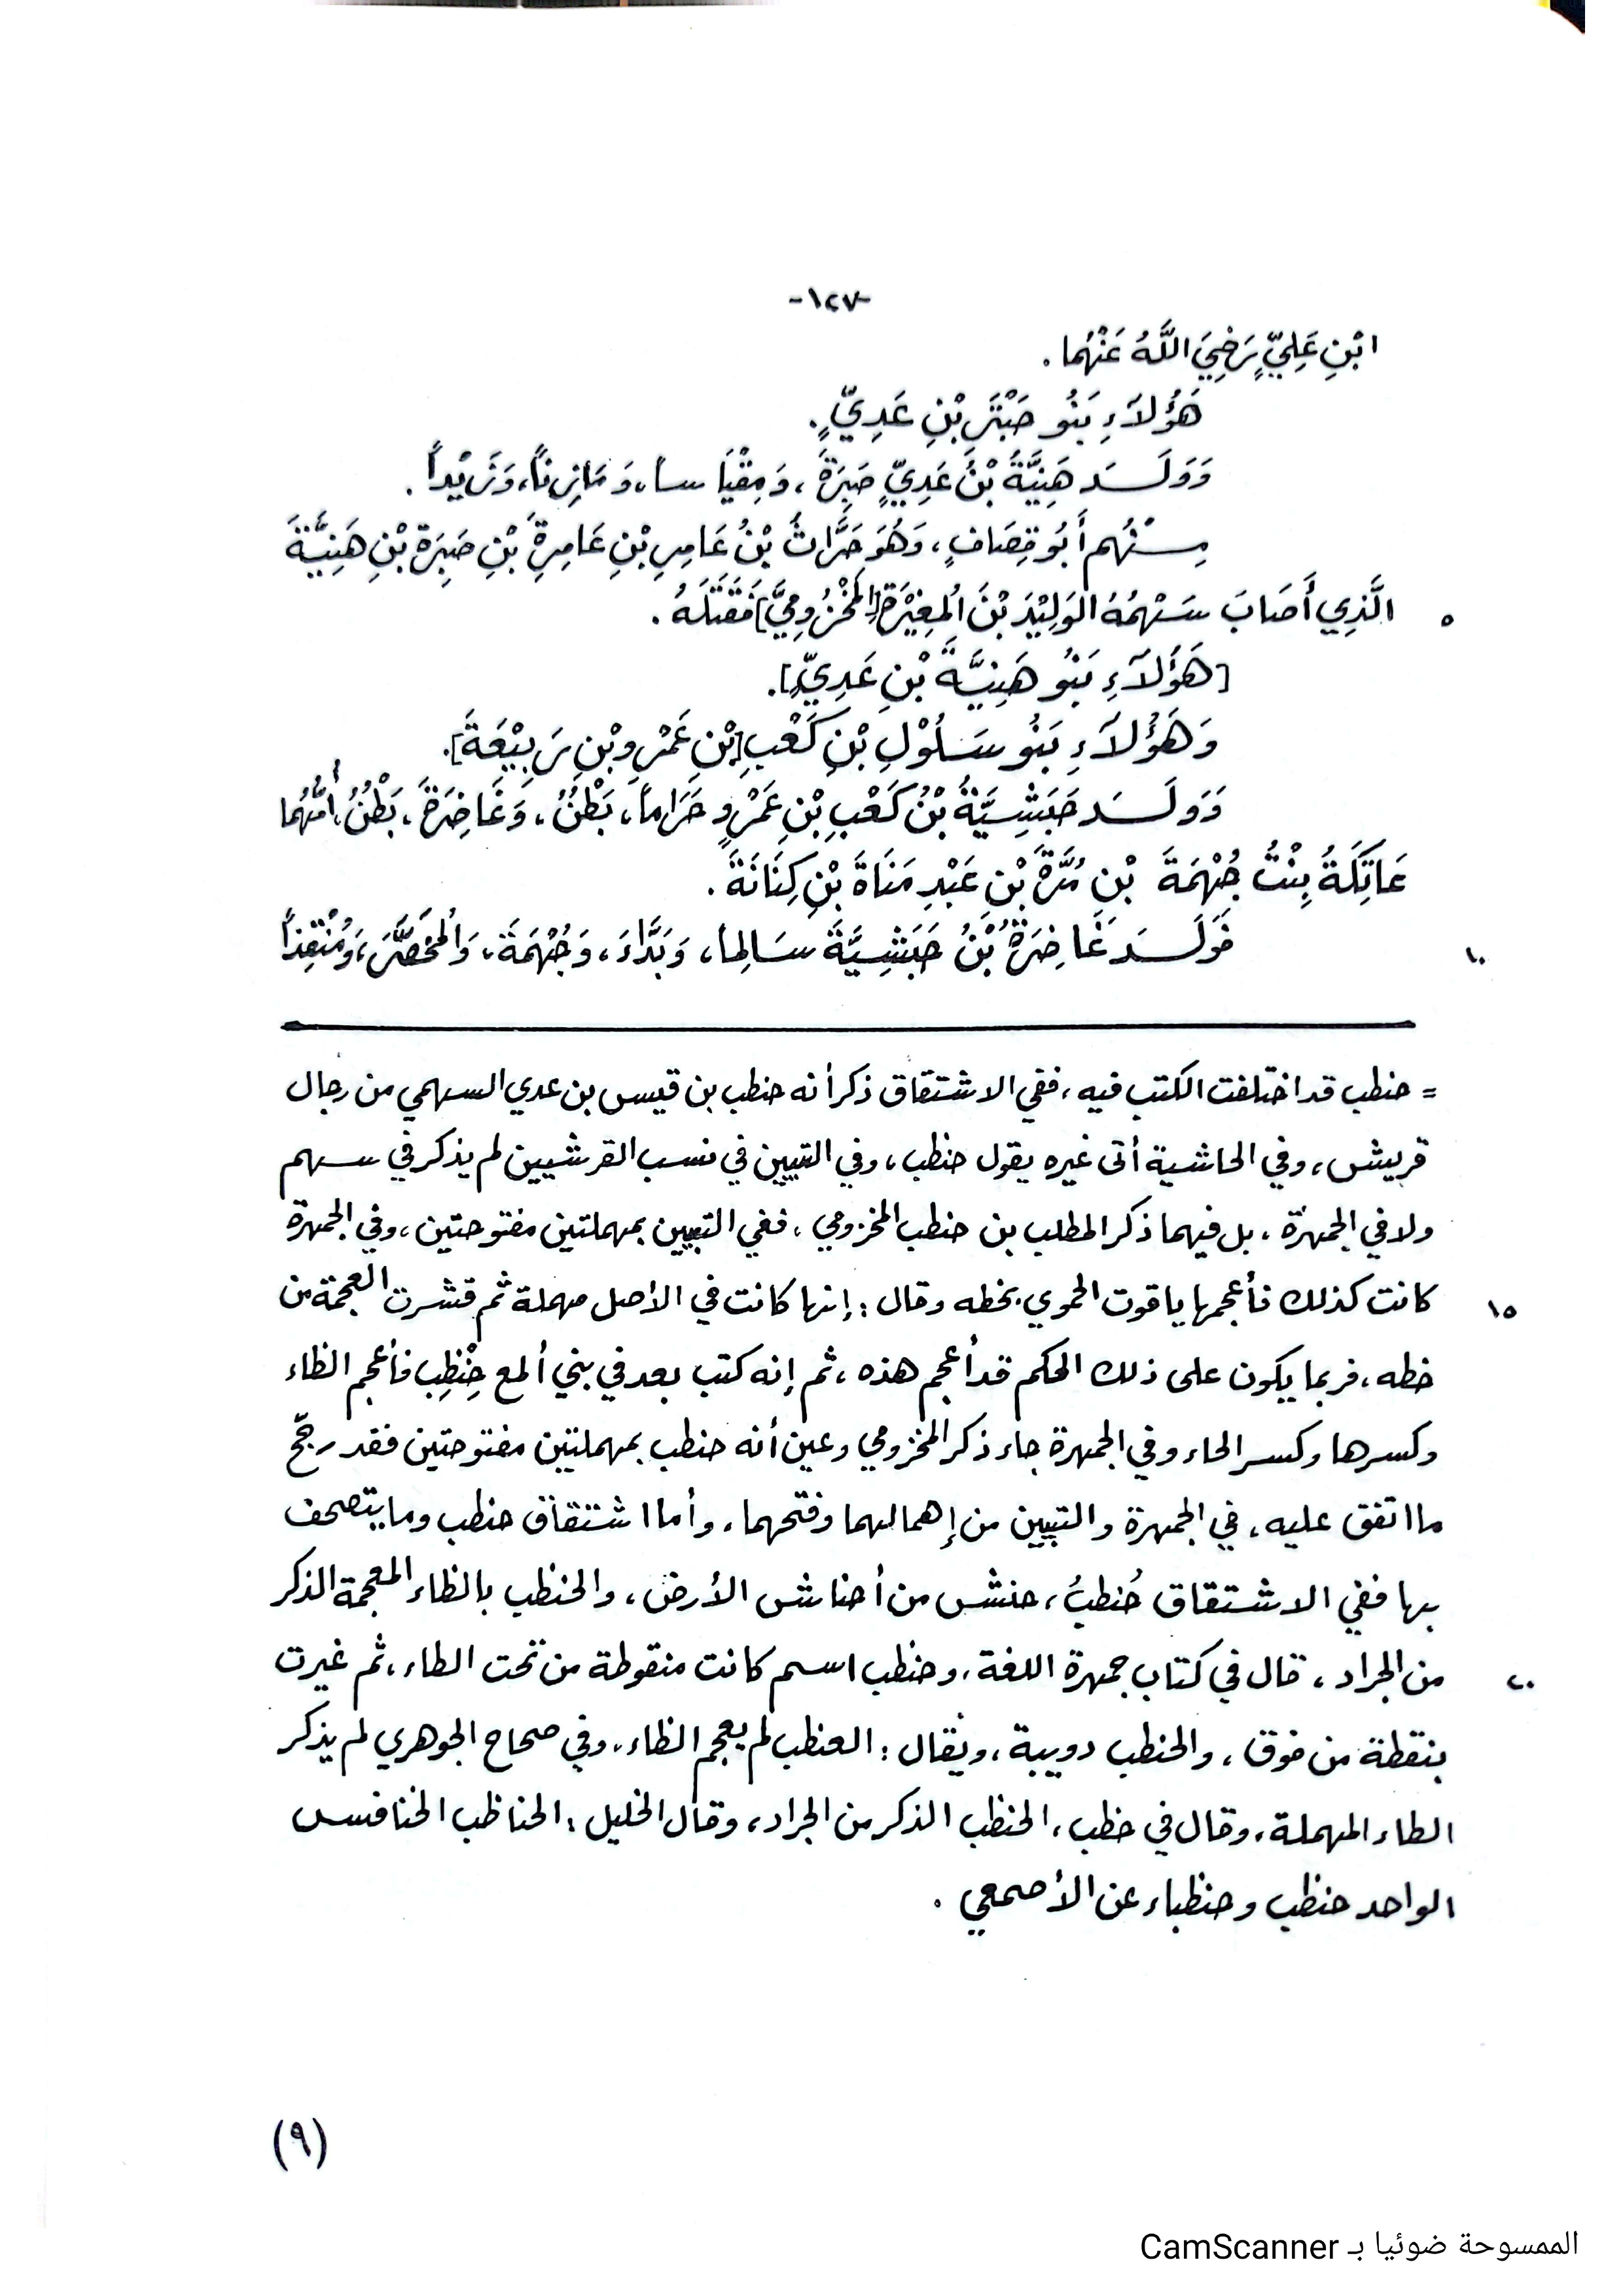 -١٢٧-
ابْنِ عَلِيٍّ رَضِيَ اللَّهُ عَنْهُما .
هَؤُلاَءِ بَنُو حَبْتَرِ بْنِ عَدِيٍّ .
وَوَلَـــدَ هَنِيَّةُ بْنُ عَدِيٍّ ضَبِرَةَ ، وَمِقْيَاساً، وَمَازِناً، وَزَيْداً .
مِـــنْهُم أَبُو قِصَافٍ ، وَهُوَ حَرَّاثُ بْنُ عَامِرِ بْنِ عَامِرَةِ بْنِ ضَبِرَةَ بْنِ هَنِيَّةَ
٥ الَّذِي أَصَابَ سَهْمُهُ الوَلِيْدَ بْنَ الُمِغيْرَةِ [المَخْزُومِيَّ] فَقَتَلَهُ .
[هَؤُلاَءِ بَنُو هَنِيَّةَ بْنِ عَدِيٍّ].
وَهَؤُلاَءِ بَنُو سَلُوْلِ بْنِ كَعْبِ [بْنِ عَمْرِو بْنِ رَبِيْعَةَ].
وَوَلَـــدَ حَبَشِيَّةُ بْنُ كَعْبِ بْنِ عَمْرٍو حَرَاماً، بَطْنٌ، وَغَاضِرَةَ، بَطْنٌ، أُمُّهُما
عَاتِكَةُ بِنْتُ جُهْمَةَ بْنِ مُرَّةَ بْنِ عَبْدِ مَنَاةَ بْنِ كِنَانَةَ .
١٠ فَوَلَـــدَ غَاضِرَةُ بْنُ حَبَشِيَّةَ سَالِماً، وَبَدَّاءَ، وَجُهْمَةَ، وَالمُخَصَّرَ، وَمُنْقِذاً
= حنطب قد اختلفت الكتب فيه ، ففي الاشتقاق ذكر أنه حنطب بن قيس بن عدي السهمي من رجال
قريش، وفي الحاشية أتى غيره يقول حنظب ، وفي التبيين في نسب القرشيين لم يذكر في سهم
ولا في الجمهرة ، بل فيهما ذكر المطلب بن حنطب المخزومي ، ففي التبيين بمهملتين مفتوحتين ، وفي الجمهرة
١٥ كانت كذلك فأعجمها ياقوت الحموي بخطه وقال : إنها كانت في الأصل مهملة ثم قشرت العجمة من
خطه ، فربما يكون على ذلك الحكم قد أعجم هذه ، ثم إنه كتب بعد في بني ألمع حِنْظِب فأعجم الظاء
وكسرها وكسر الحاء وفي الجمهرة جاء ذكر المخزومي وعين أنه حنطب بمهملتين مفتوحتين فقد رجّح
ما اتفق عليه ، في الجمهرة والتبيين من إهمالهما وفتحهما ، وأما اشتقاق حنطب وما يتصحف
بها ففي الاشتقاق حُنطبُ ، حنش من أحناش الأرض ، والحنظب بالظاء المعجمة الذكر
٢٠ من الجراد ، قال في كتاب جمهرة اللغة ، وحنطب اسم كانت منقوطة من تحت الطاء ، ثم غيرت
بنقطة من فوق ، والحنطب دويبة ، ويقال : العنظب لم يعجم الظاء ، وفي صحاح الجوهري لم يذكر
الطاء المهملة ، وقال في حظب ، الحنظب الذكر من الجراد ، وقال الخليل : الحناظب الخنافس
الواحد حنظب وحنظباء عن الأصمعي .
(٩)
الممسوحة ضوئيا بـ CamScanner